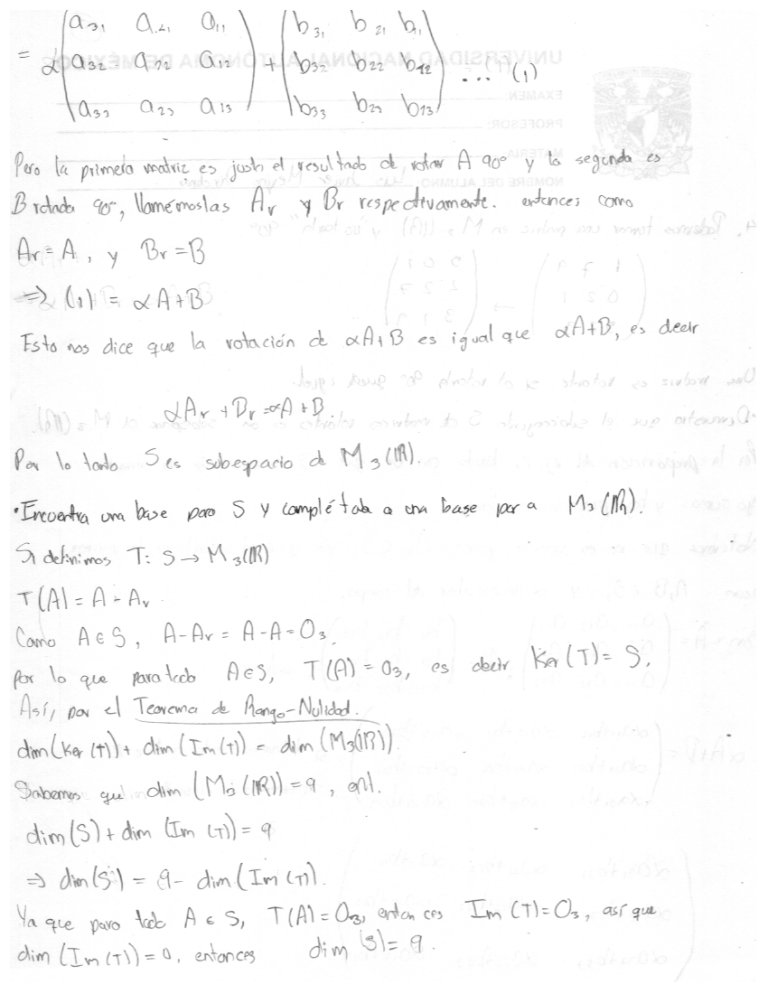 = α (a₃₁ a₂₁ a₁₁
a₃₂ a₂₂ a₁₂
a₃₃ a₂₃ a₁₃) + (b₃₁ b₂₁ b₁₁
b₃₂ b₂₂ b₁₂
b₃₃ b₂₃ b₁₃) ... (1)
Pero la primera matriz es justo el resultado de rotar A 90° y la segunda es
B rotada 90°, llamémoslas Ar y Br respectivamente. entonces como
Ar = A, y Br = B
⟹ (1) = αA+B
Esto nos dice que la rotación de αA+B es igual que αA+B, es decir
αAr + Br = αA + B.
Por lo tanto S es subespacio de M₃(ℝ).
• Encuentra una base para S y complétala a una base para M₃(ℝ).
Si definimos T: S → M₃(ℝ)
T(A) = A - Ar
Como A∈S, A-Ar = A-A = O₃.
por lo que para todo A∈S, T(A) = O₃, es decir Ker(T) = S.
Así, por el Teorema de Rango-Nulidad.
dim(Ker(T)) + dim(Im(T)) = dim(M₃(ℝ))
Sabemos que dim(M₃(ℝ)) = 9,
dim(S) + dim(Im(T)) = 9
⇒ dim(S) = 9 - dim(Im(T)).
Ya que para todo A∈S, T(A) = O₃, entonces Im(T) = O₃, así que
dim(Im(T)) = 0, entonces dim(S) = 9.